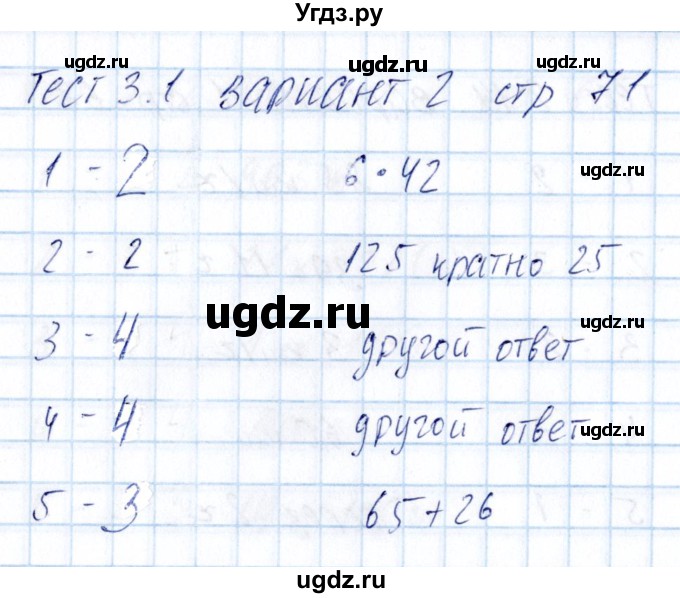 Угдз.ру
ugdz.ru ugdz.ru ugdz.ru
Тест 3.1 вариант 2 стр 71
1 - 2 6 • 42
ugdz.ru
2 - 2 125 кратно 25
ugdz.ru
ugdz.ru
3 - 4 другой ответ
4 - 4 другой ответ
ugdz.ru
5 - 3 65 + 26
ugdz.ru ugdz.ru
ugdz.ru